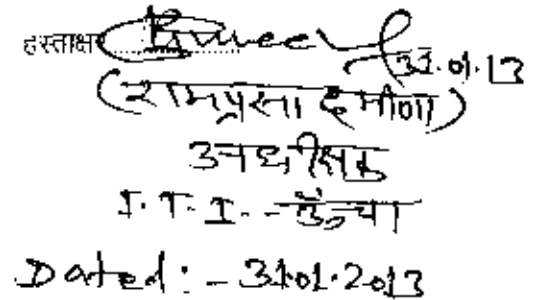 हस्ताक्षर 31.01.13
(रामप्रसाद मीणा)
अधीक्षक
I.T.I.-
Dated:- 31.01.2013